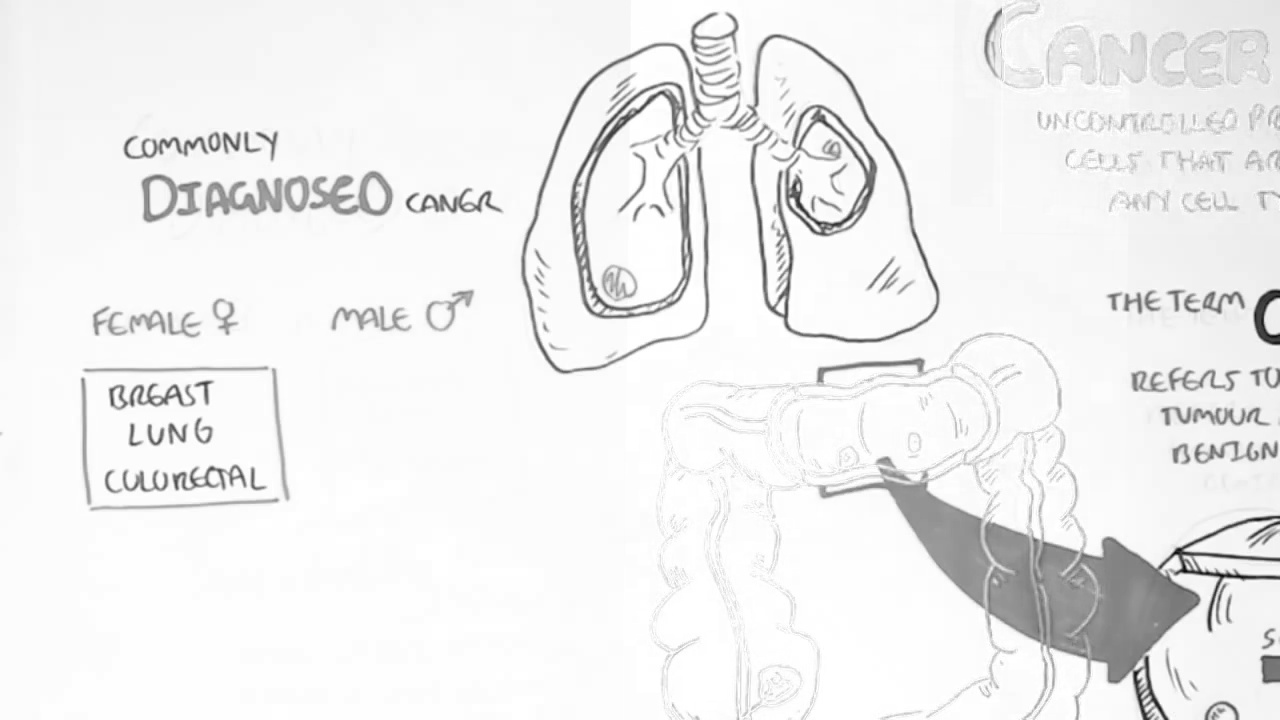 COMMONLY
DIAGNOSED CANER
FEMALE ♀
MALE ♂
BREAST
LUNG
COLORECTAL
CANCER
UNCONTROLLED PR
CELLS THAT AR
ANY CELL TY
THE TERM C
REFERS TO
TUMOUR
BENIGN
S